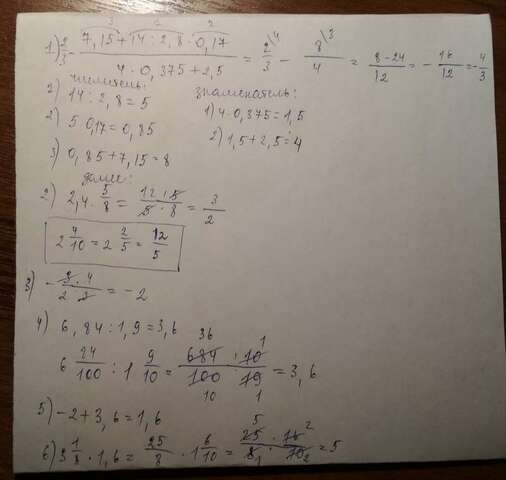 3 1 2
1) 2/3 - (7,15 + 14 : 2,8 · 0,17)/(4 · 0,375 + 2,5) = 2/3 - 8/4 = (8-24)/12 = - 16/12 = - 4/3
числитель:
1) 14 : 2,8 = 5
2) 5·0,17 = 0,85
3) 0,85 + 7,15 = 8
знаменатель:
1) 4·0,375 = 1,5
2) 1,5 + 2,5 = 4
далее:
2) 2,4 · 5/8 = (12 · 5)/(5 · 8) = 3/2
2 4/10 = 2 2/5 = 12/5
3) - (3 · 4)/(2 · 3) = -2
4) 6,84 : 1,9 = 3,6
36 1
6 24/100 : 1 9/10 = (684 · 10)/(100 · 19) = 3,6
10 1
5) -2 + 3,6 = 1,6
6) 3 1/8 · 1,6 = 25/8 · 1 6/10 = (25 · 16)/(8 · 10) = 5